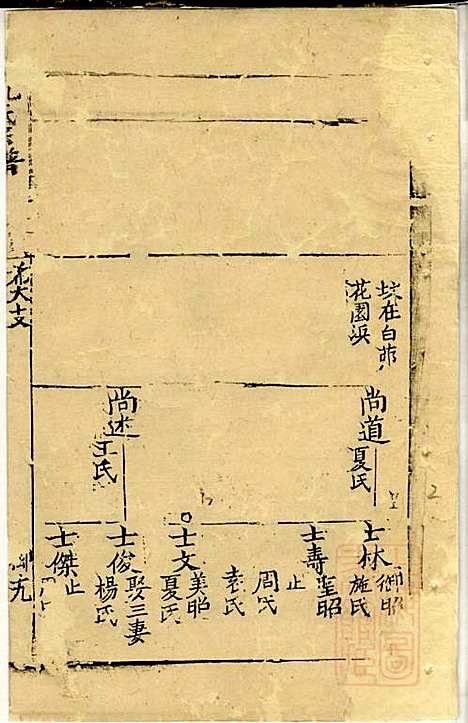 坟在白茆
花園浜
尚道
夏氏
尚述
王氏
士林
御昭
施氏
士壽
聖昭
止
周氏
袁氏
士文
美昭
夏氏
士俊
娶三妻
楊氏
士傑
止
氏宗譜
老大支
九